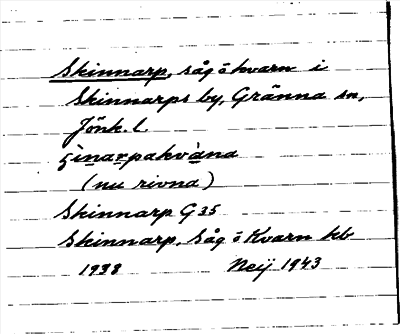 Skinnarp, såg ö kvarn i
Skinnarps by, Gränna sn,
Jönk. l.
ʂìnarpakvàna
(nu rivna)
Skinnarp G35
Skinnarp, Såg ö Kvarn kb
1938 Neij 1943